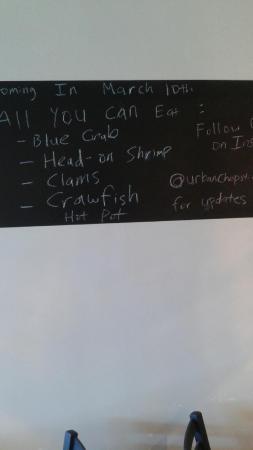 oming In March 10th.
All You Can Eat :
- Blue Crab
- Head-on Shrimp
- Clams
- Crawfish
Hot Pot
Follow
on
@urbanchopst
for updates